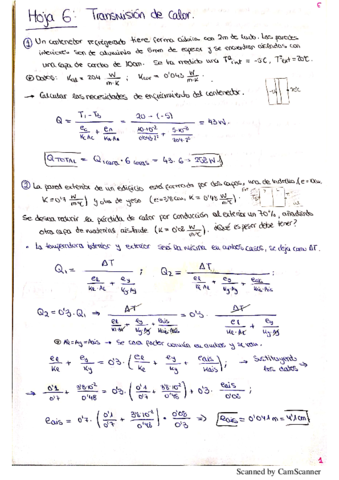 5
Hoja 6: Transmisión de Calor.
① Un contenedor refrigerado tiene forma cúbica con 2m de lado. Las paredes
interiores son de aluminio de 5mm de espesor y se encuentran aisladas con
una capa de corcho de 10cm. Se ha medido una Tª int = -5ºC, Tª ext = 20ºC.
Datos: K al = 204 W/m·K ; K cor = 0'043 W/m·K
→ Calcular las necesidades de enfriamiento del contenedor.
Q = (T1 - T0) / (ec/(Kc Ac) + ea/(Ka Ac)) = (20 - (-5)) / = 43 W.
Q TOTAL = Q 1 cara · 6 caras = 43 · 6 = 258 W
② La pared exterior de un edificio está formada por dos capas, una de ladrillo (e = 10cm,
K = 0'7 W/m·ºC) y otra de yeso (e = 3,8 cm, K = 0'48 W/m·ºC).
Se desea reducir la pérdida de calor por conducción al exterior un 70%, añadiendo
otra capa de material aislante (K = 0'08 W/m·ºC). ¿Qué espesor debe tener?
• La temperatura interior y exterior será la misma en ambos casos, se deja como ΔT.
Q1 = ΔT / (el/(Kl Ac) + ey/(Ky Ay)) ; Q2 = ΔT /
Q2 = 0'3 · Q1 ⇒ ΔT / = 0'3 · ΔT /
→ Se saca factor común en ambos y se van.
→ el/Kl + ey/Ky = 0'3 · (el/Kl + ey/Ky + eais/Kais) ; → Sustituyendo
los datos →
→ 0'1/0'7 + 3'8·10⁻²/0'48 = 0'3 · (0'1/0'7 + 3'8·10⁻²/0'48) + 0'3 · eais/0'08 ;
eais = 0'7 · (0'1/0'7 + 3'8·10⁻²/0'48) · 0'08/0'3 ⇒ eais = 0'041 m = 4'1 cm
1
Scanned by CamScanner